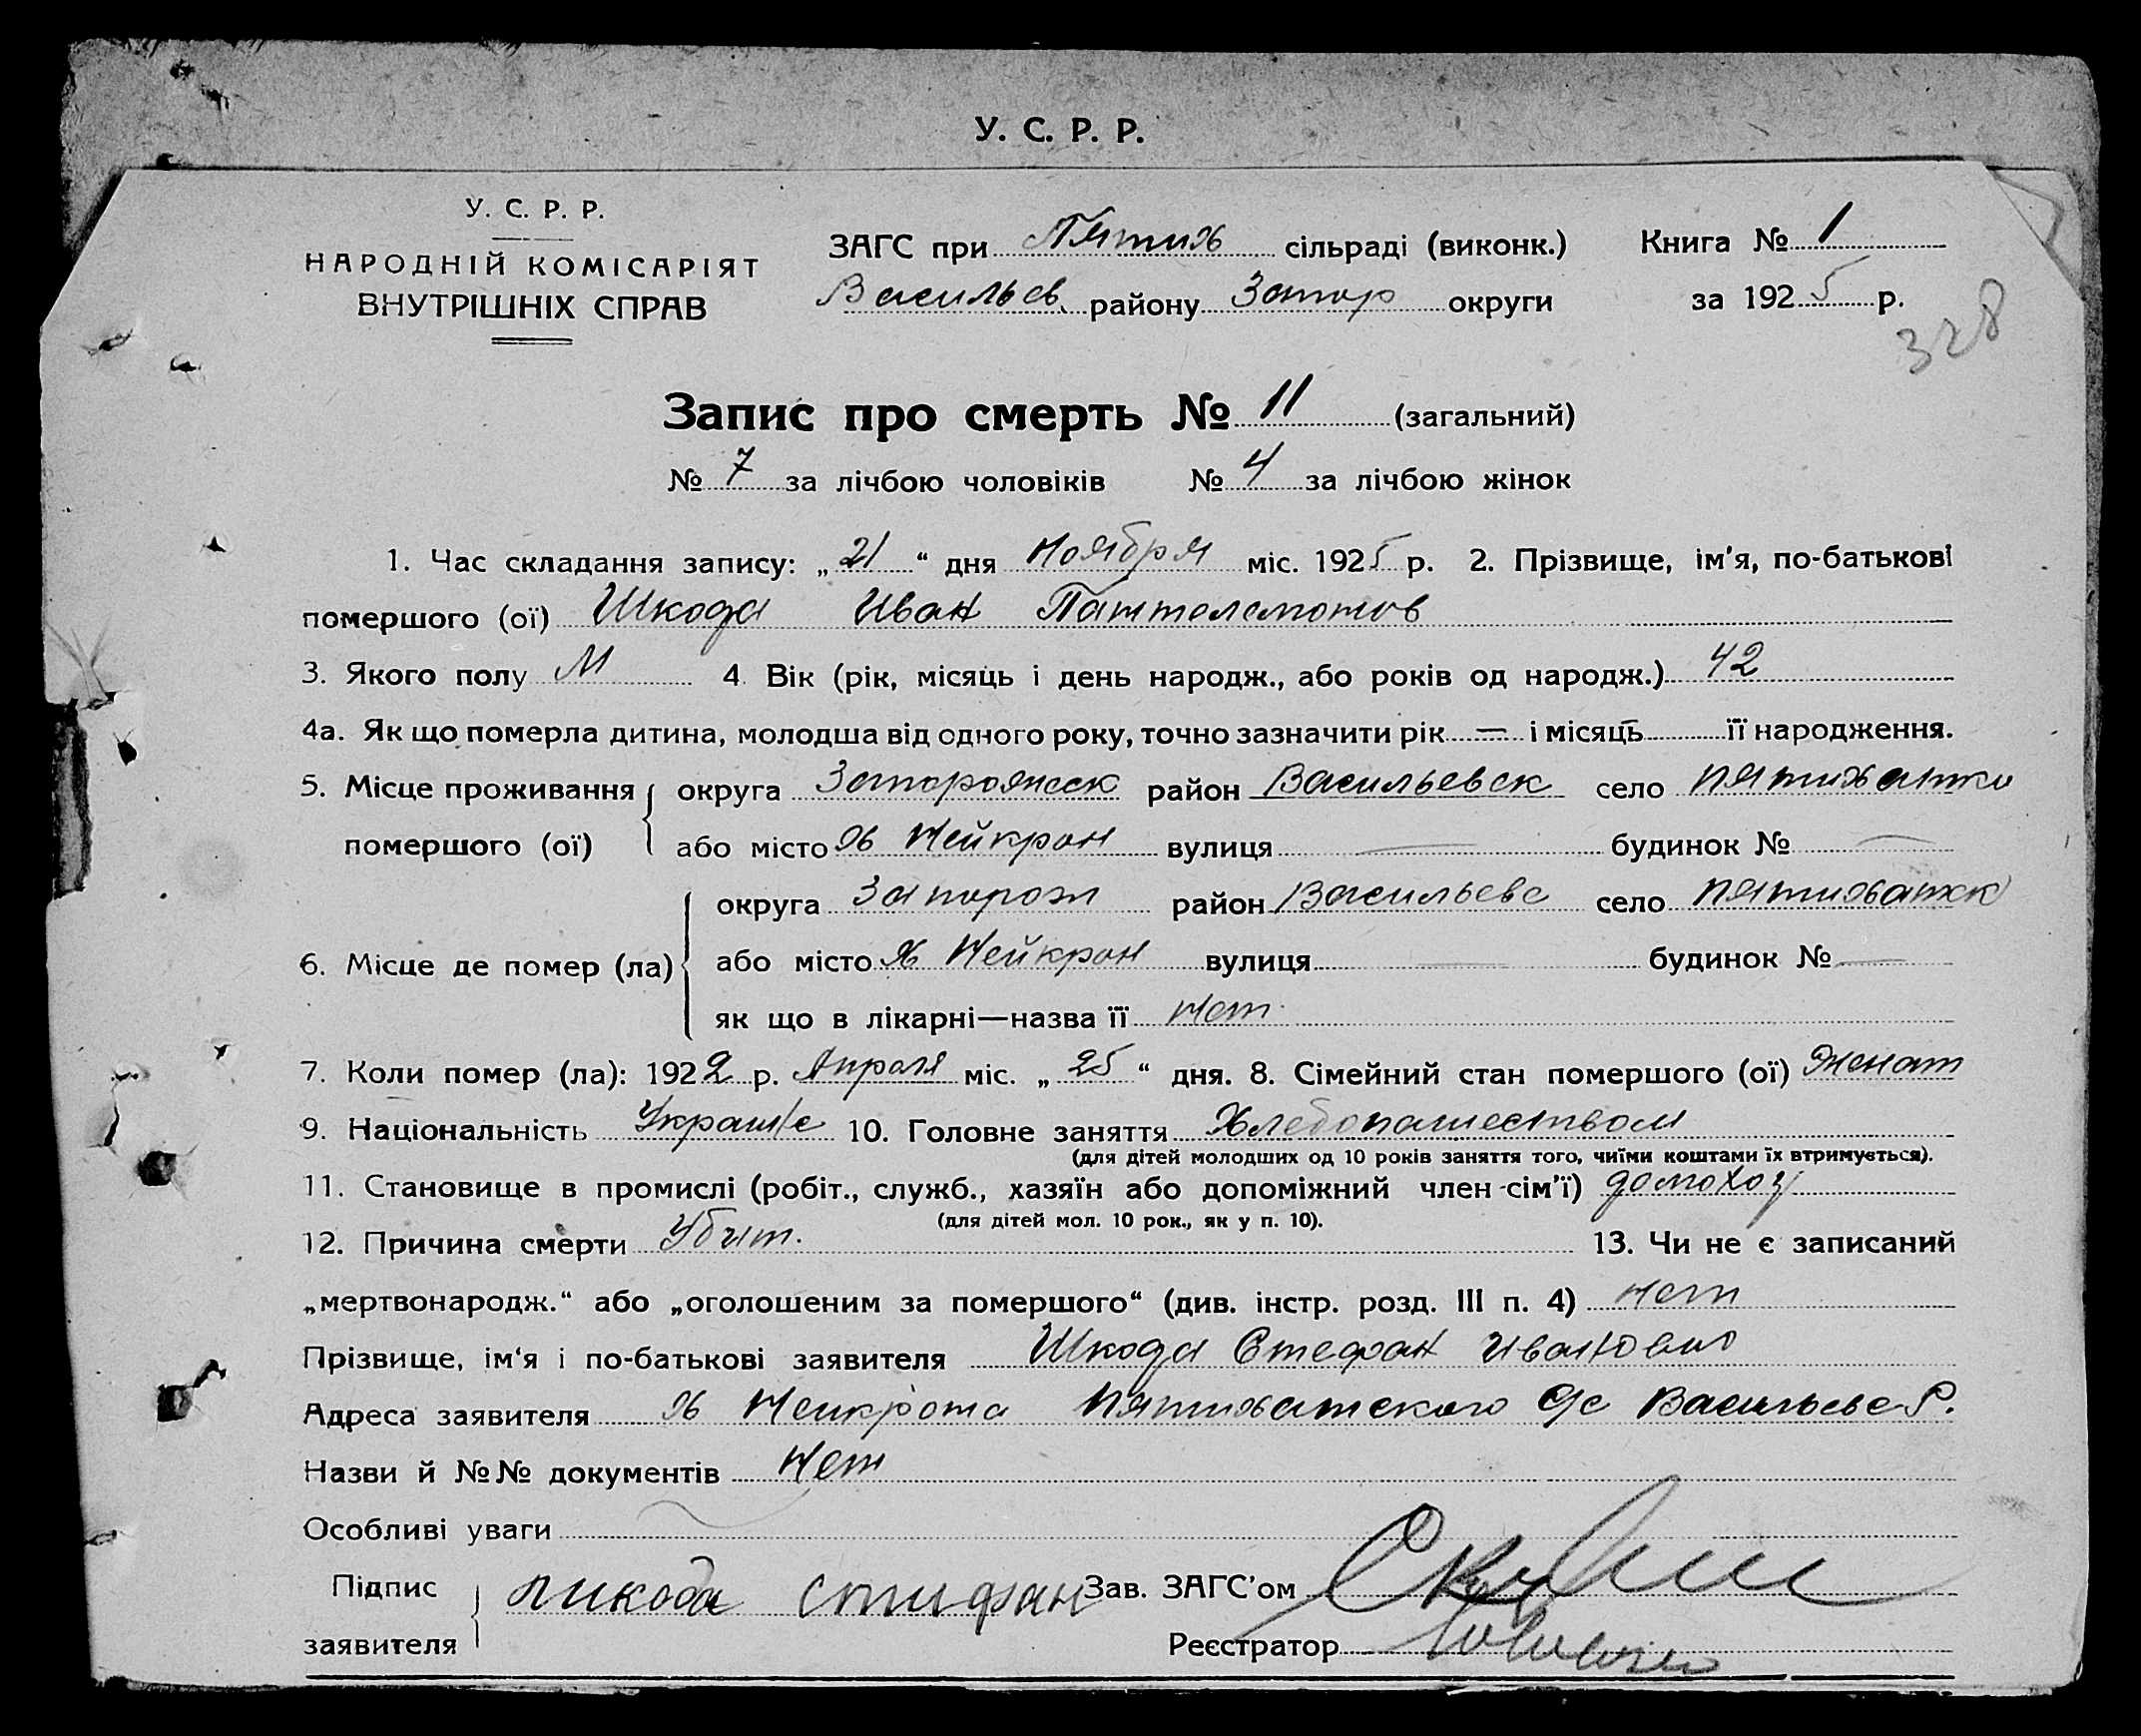 У. С. Р. Р.
У. С. Р. Р.
НАРОДНІЙ КОМІСАРІЯТ
ВНУТРІШНІХ СПРАВ
ЗАГС при Пятих сільраді (виконк.)
Васильев. району Запор округи
Книга № 1
за 1925 р.
328
Запис про смерть № 11 (загальний)
№ 7 за лічбою чоловіків № 4 за лічбою жінок
1. Час складання запису: „ 21 “ дня Ноября міс. 1925 р. 2. Прізвище, ім'я, по-батькові
помершого (ої) Шкода Иван
3. Якого полу М 4. Вік (рік, місяць і день народж., або років од народж.) 42
4а. Як що померла дитина, молодша від одного року, точно зазначити рік — і місяць — її народження.
5. Місце проживання помершого (ої) округа Запорожск район Васильевск село Пятихатки
або місто Нейкрон вулиця — будинок № —
6. Місце де помер (ла) округа Запорож район Васильевс село Пятихатск
або місто Нейкрон вулиця — будинок № —
як що в лікарні—назва її нет
7. Коли помер (ла): 1922 р. Апреля міс. „ 25 “ дня. 8. Сімейний стан помершого (ої) Женат
9. Національність 10. Головне заняття Хлебопашеством
(для дітей молодших од 10 років заняття того, чиїми коштами їх втримується).
11. Становище в промислі (робіт., служб., хазяїн або допоміжний член сім'ї) домохоз
(для дітей мол. 10 рок., як у п. 10).
12. Причина смерти Убит. 13. Чи не є записаний
„мертвонародж.“ або „оголошеним за помершого“ (див. інстр. розд. III п. 4) нет
Прізвище, ім'я і по-батькові заявителя Шкода Стефан Иванович
Адреса заявителя Пятихатского с/с Васильевс Р.
Назви й №№ документів Нет
Особливі уваги
Підпис заявителя Шкода Стифан Зав. ЗАГС'ом
Реєстратор